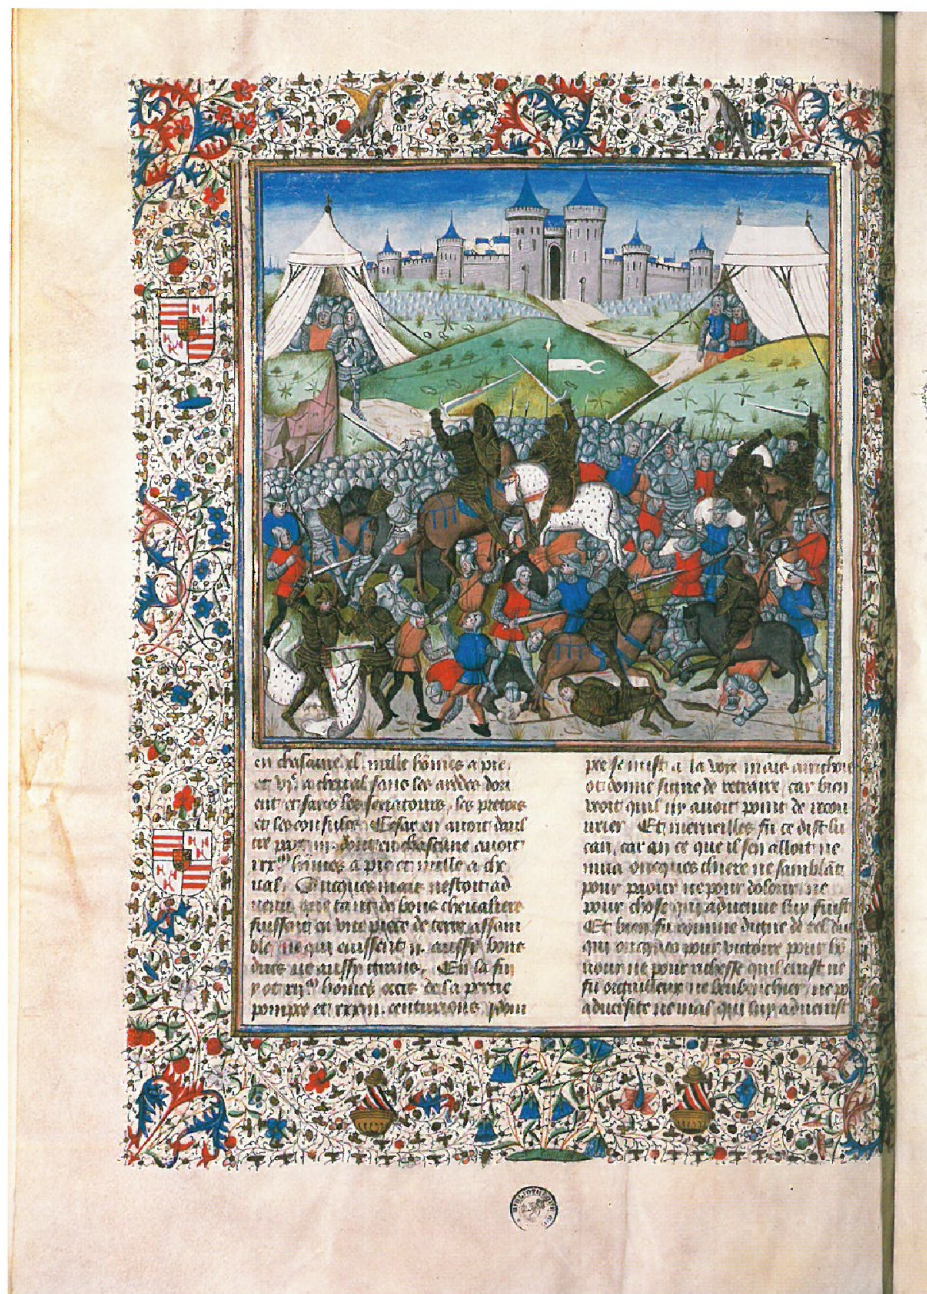 en chascune xl mille homes a pie
et vijᵐ a cheval sans les aydes dont
cent et sans les senatours, les pretres
et les consules Cesar en avoit
en chascune avoit
xxᵐ homes a pie et mille a che
val. Oncques mais nestoit ad
venu que tant de bons chevaliers
fuissent en une piece de terre assam
ble ne qui eussent
ducs ne aussy tirans, En la fin
homes occis de la partie
pompe et xxxiij centurions pom
pee se mist a la voie mais
ot donne signe de retraire, car bien
veoit quil ny avoit point de recou
vrier Et merveilles fu ce dist lu
can, car en ce que il sen alloit ne
mua oncques chiere ne samblāt
pour paour ne pour doulour ne
pour chose qui advenue luy fuist
Et bien fu comme digne de tel
qui oncques pour victoire pour hō
nour ne pour richesse quil euist ne
fu orguilleux ne beubenchier ne p
adversite ne mal qui luy advenist